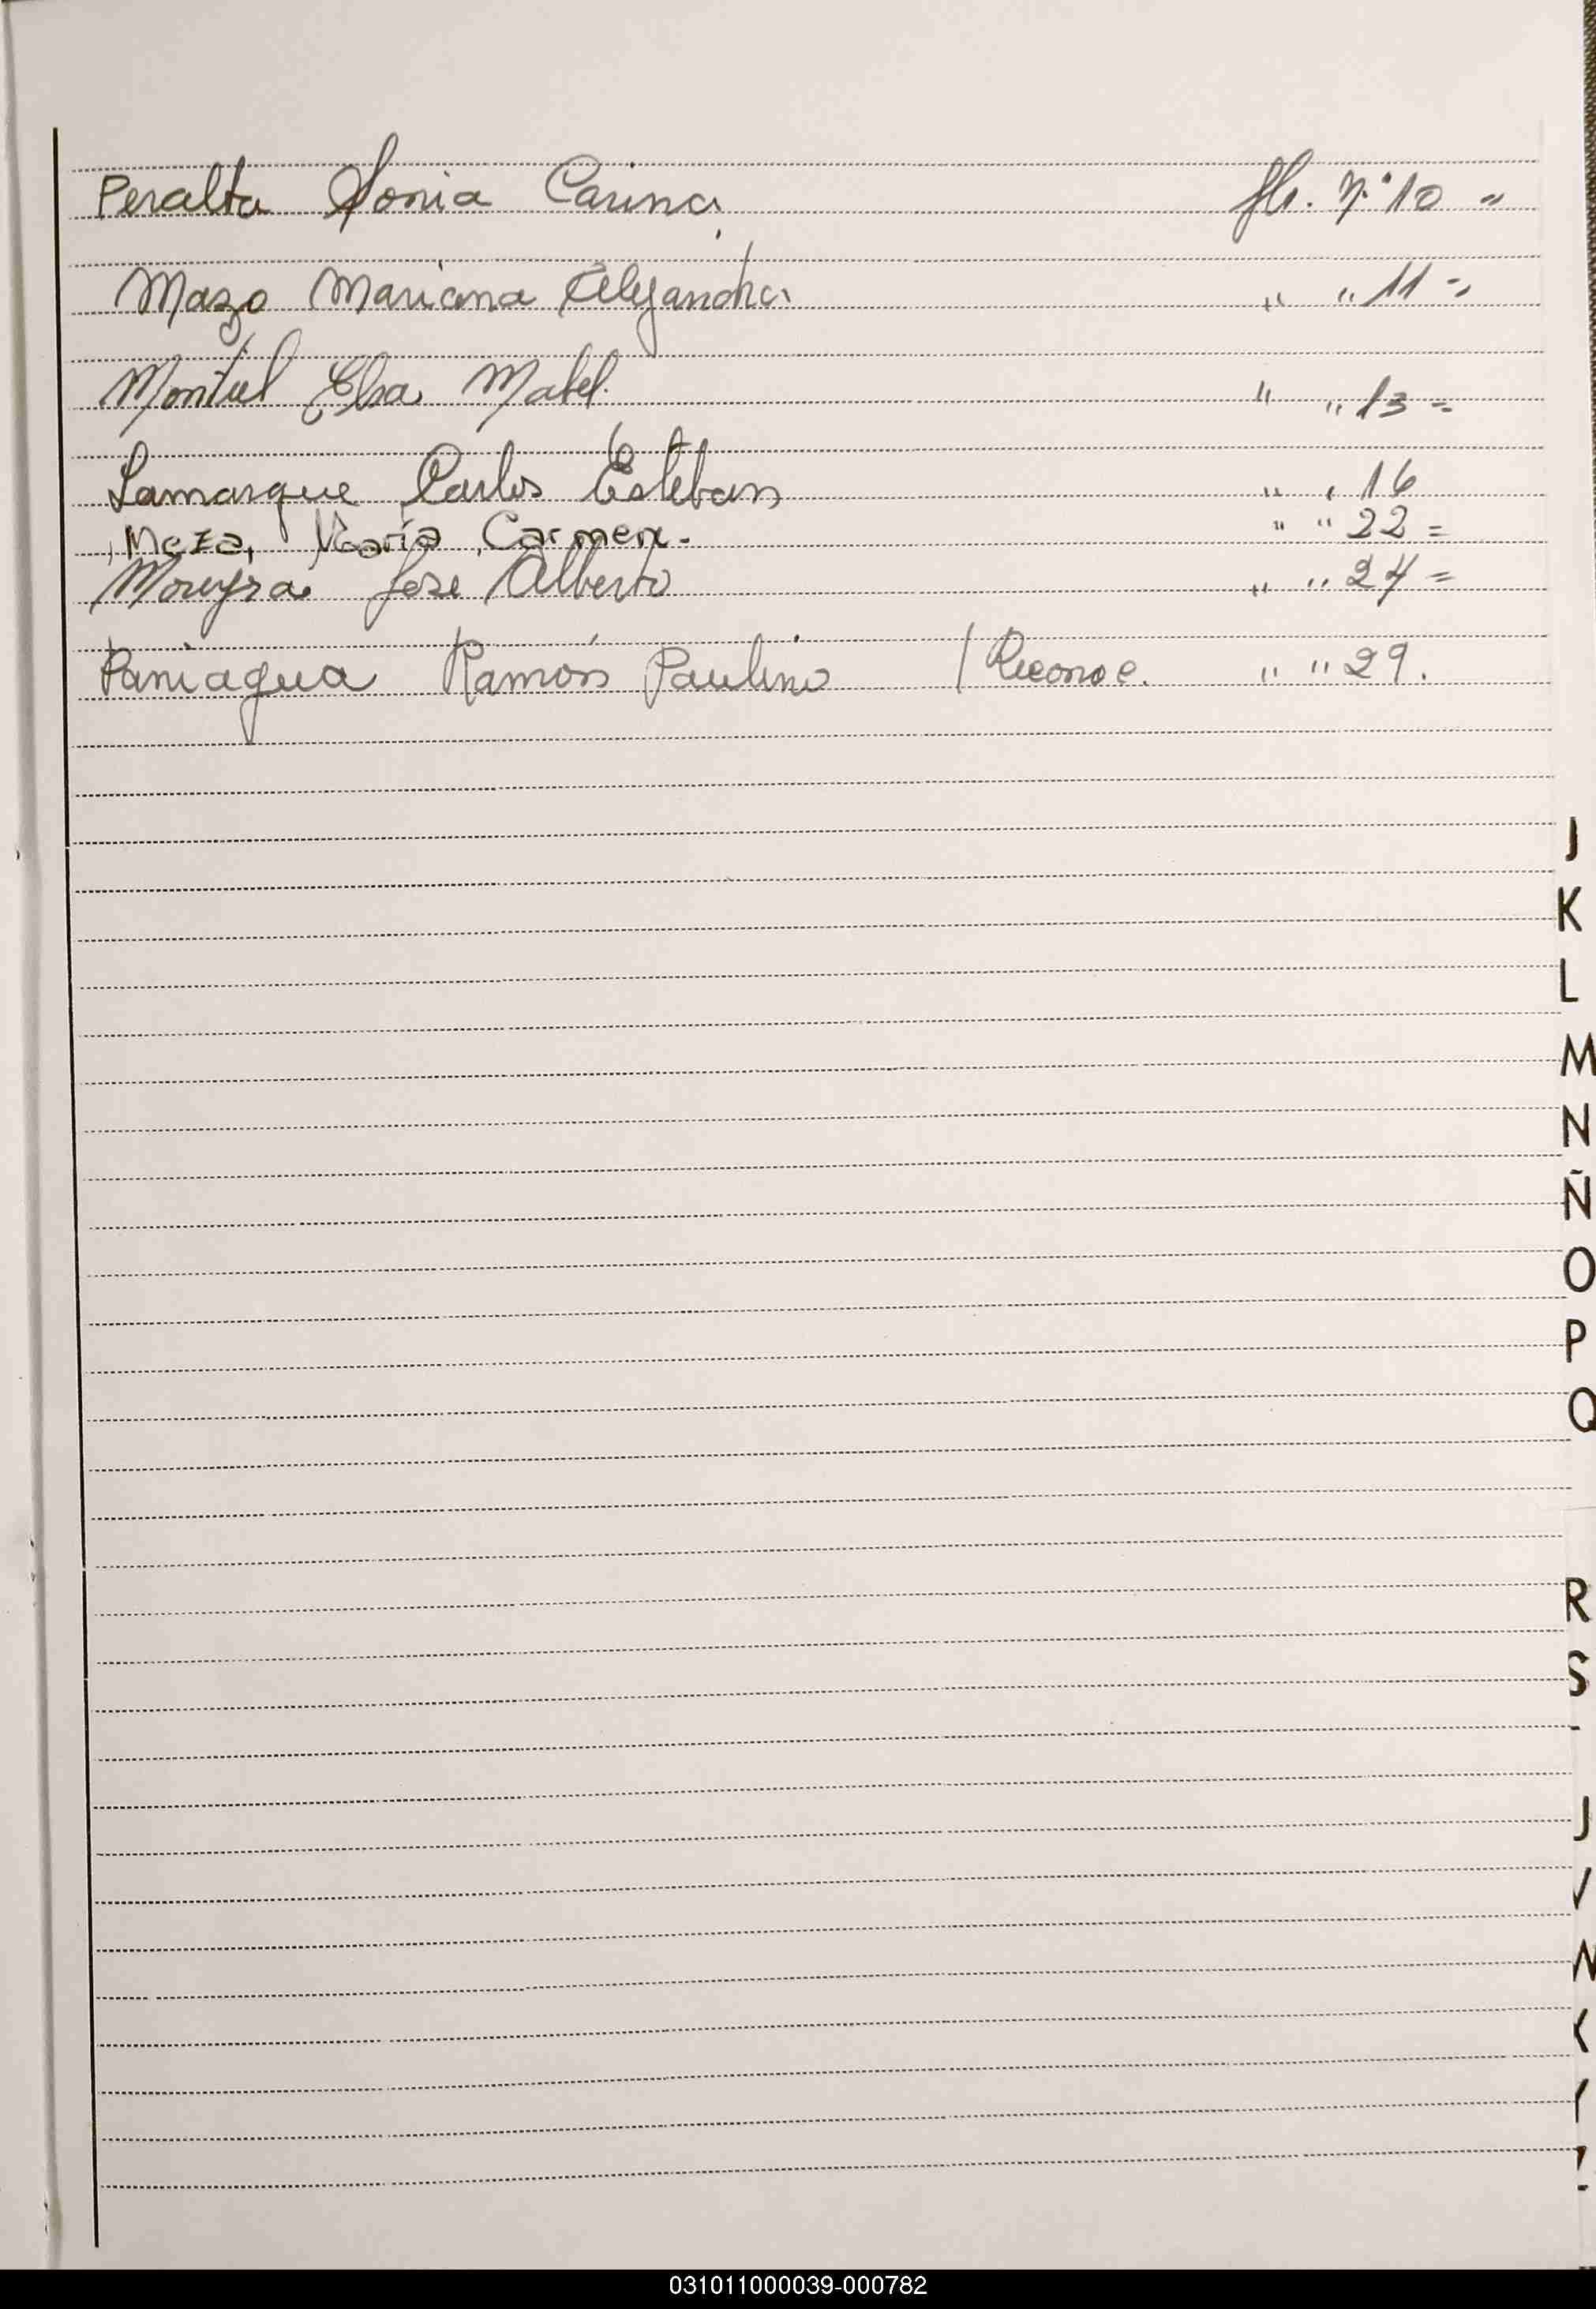 Peralta Sonia Carina fls. Nº 10 "
Mazo Mariana Alejandra " " 11 =
Montiel Elsa Mabel. " " 13 =
Lamarque Carlos Esteban " " 16
Meza, María Carmen.- " " 22 =
Moreyra Jose Alberto " " 24 =
Paniagua Ramón Paulino / Reconoc. " " 29.
J
K
L
M
N
Ñ
O
P
Q
R
S
V
031011000039-000782